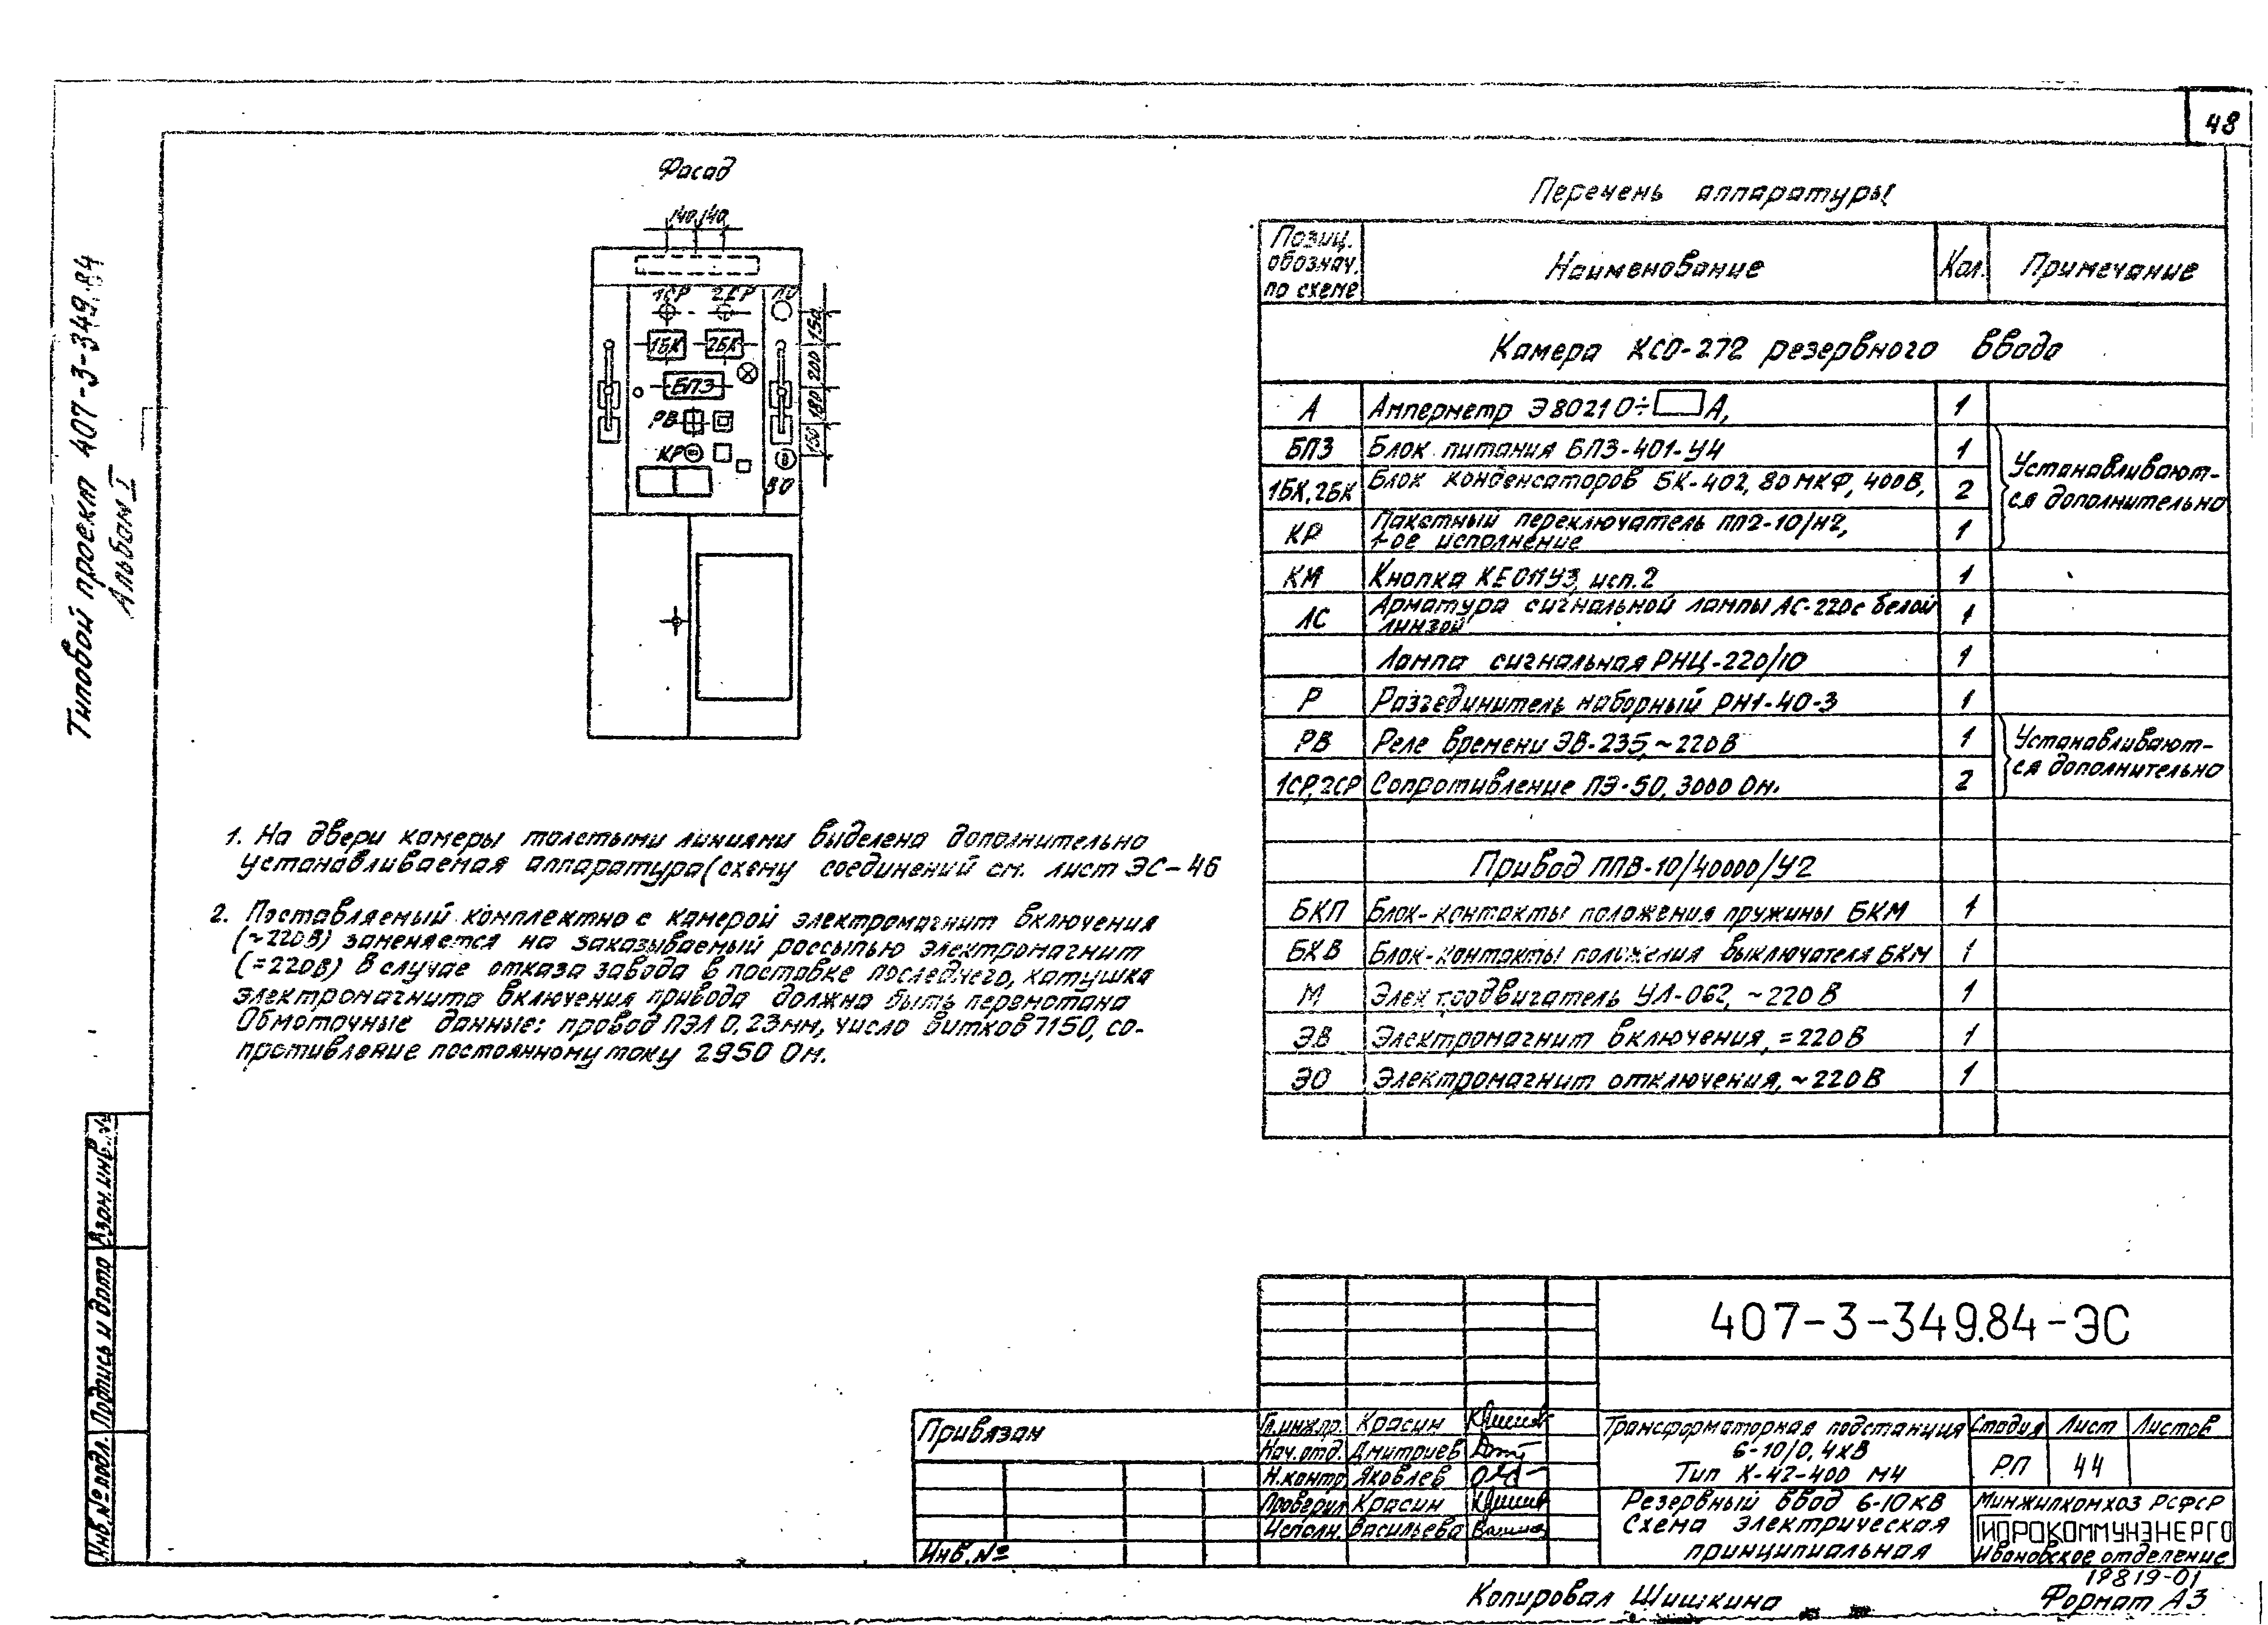 48
Типовой проект 407-3-349.84
Альбом I
Фасад
140 140
1СР 2СР ЛО
1БК 2БК
БПЗ
РВ
КР
ВО
150
200
180
150
1. На двери камеры толстыми линиями выделена дополнительно
устанавливаемая аппаратура (схему соединений см. лист ЭС-46
2. Поставляемый комплектно с камерой электромагнит включения
(~220В) заменяется на заказываемый россыпью электромагнит
(=220В) В случае отказа завода в поставке последнего, катушка
электромагнита включения привода должна быть перемотана
Обмоточные данные: провод ПЭЛ 0,23мм, число витков 7150, со-
противление постоянному току 2950 Ом.
Перечень аппаратуры
Позиц. обознач. по схеме | Наименование | Кол. | Примечание
Камера КСО-272 резервного ввода
А | Амперметр Э8021 0÷ А, | 1
БПЗ | Блок питания БПЗ-401-У4 | 1 | Устанавливают-
1БК,2БК | Блок конденсаторов БК-402, 80мкФ, 400В, | 2 | ся дополнительно
КР | Пакетный переключатель ПП2-10/Н2, | 1
1-ое исполнение
КИ | Кнопка КЕ011У3, исп.2 | 1
ЛС | Арматура сигнальной лампы АС-220 с белой | 1
линзой
Лампа сигнальная РНЦ-220/10 | 1
Р | Разъединитель наборный РН1-40-3 | 1
РВ | Реле времени ЭВ-235, ~220В | 1 | Устанавливают-
1СР,2СР | Сопротивление ПЭ-50, 3000 Ом. | 2 | ся дополнительно
Привод ППВ-10/40000/У2
БКП | Блок-контакты положения пружины БКМ | 1
БКВ | Блок-контакты положения выключателя БКМ | 1
М | Электродвигатель УЛ-062, ~220В | 1
ЭВ | Электромагнит включения, =220В | 1
ЭО | Электромагнит отключения, ~220В | 1
Взам.инв.№
Подпись и дата
Инв.№ подл.
Привязан
Инв.№
407-3-349.84-ЭС
Гл.инж.пр. Красин
Нач.отд. Дмитриев
Н.контр Яковлев
Проверил Красин
Исполн. Васильева
Трансформаторная подстанция
6-10/0,4кВ
Тип К-42-400 М4
Стадия Лист Листов
РП 44
Резервный ввод 6-10кВ
Схема электрическая
принципиальная
Минжилкомхоз РСФСР
ГИПРОКОММУНЭНЕРГО
Ивановское отделение
19819-01
Копировал Шишкина
Формат А3